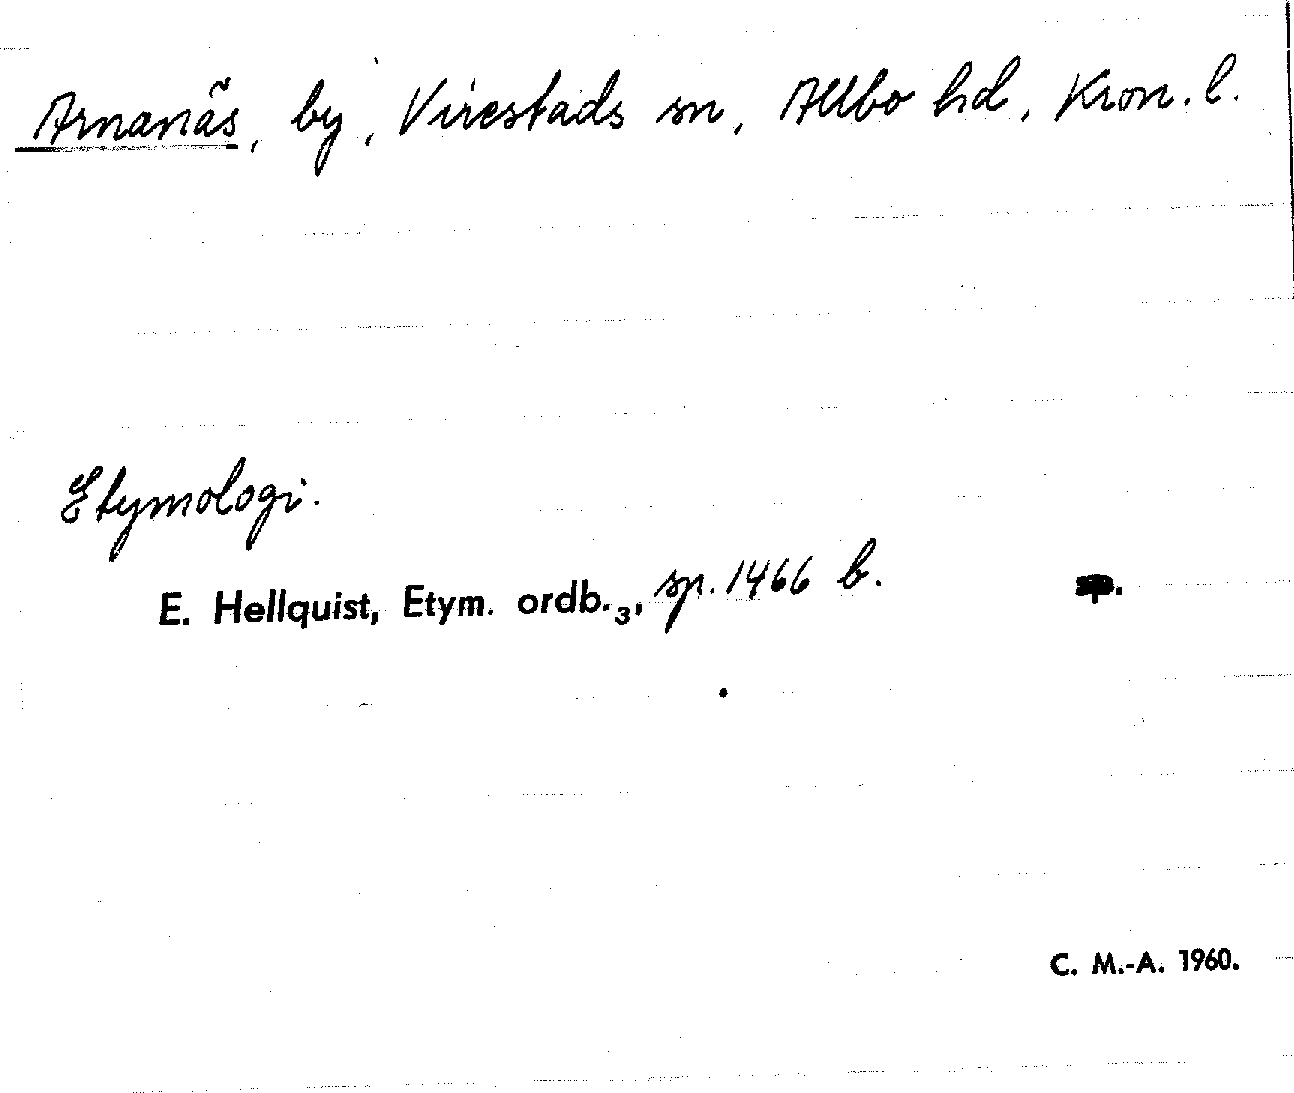 Arnanäs, by, Virestads sn, Allbo hd, Kron. l.
Etymologi.
E. Hellquist, Etym. ordb.₃, sp. 1466 b. sp.
C. M.-A. 1960.